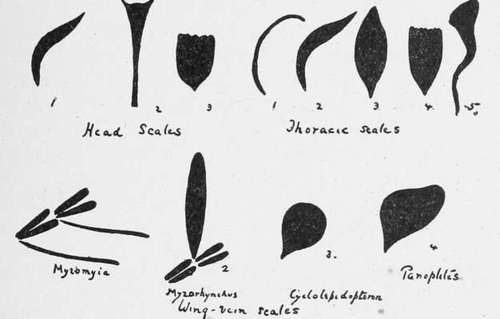 1 2 3 1 2 3 4 5
Head Scales Thoracic scales
2 3. 4
Myzomyia Myzorhynchus Cyclolepidopteron Panoplites
Wing-vein scales